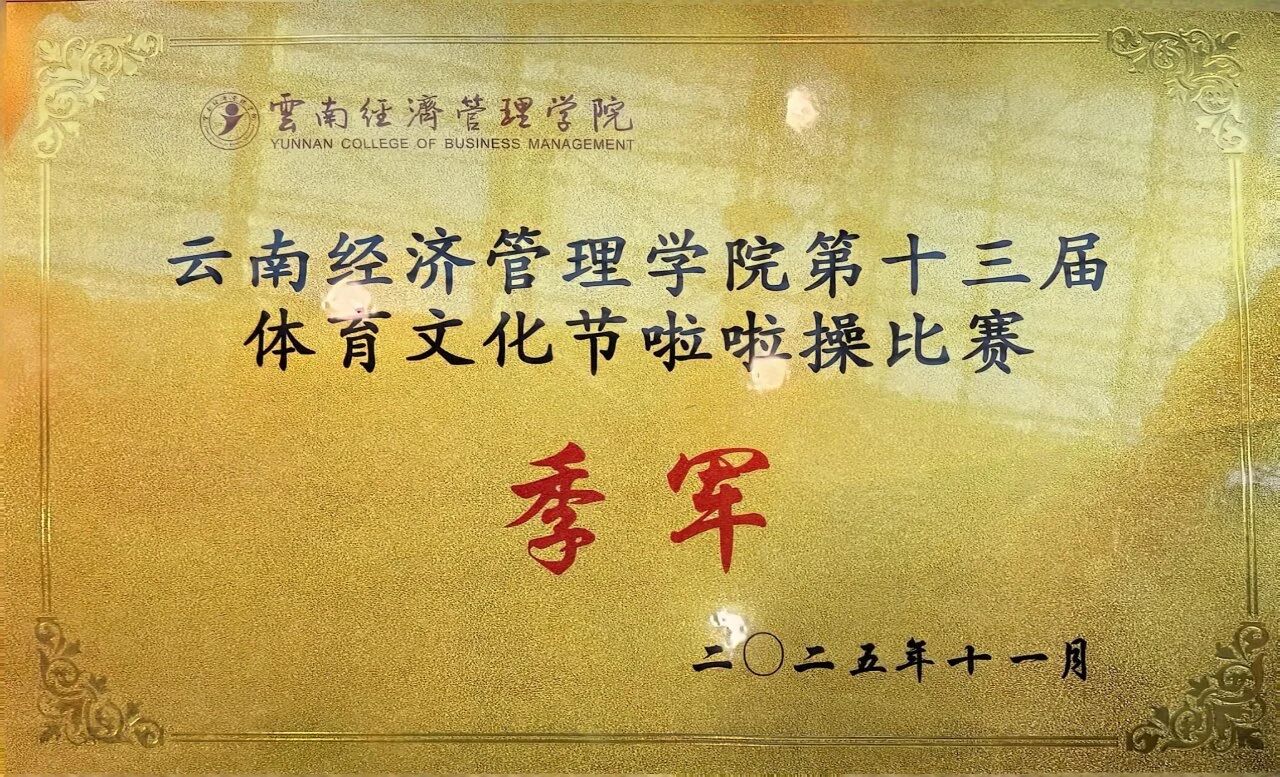 雲南经濟管理学院
YUNNAN COLLEGE OF BUSINESS MANAGEMENT
云南经济管理学院第十三届
体育文化节啦啦操比赛
季军
二〇二五年十一月